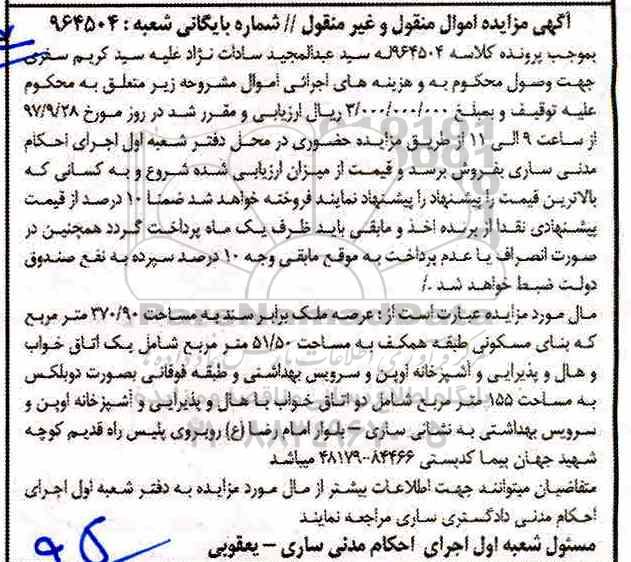 آگهی مزایده اموال منقول و غیر منقول // شماره بایگانی شعبه : ۹۶۴۵۰۴
بموجب پرونده کلاسه ۹۶۴۵۰۴له سید عبدالمجید سادات نژاد علیه سید کریم ستری
جهت وصول محکوم به و هزینه های اجرائی اموال مشروحه زیر متعلق به محکوم
علیه توقیف و بمبلغ ۳/۰۰۰/۰۰۰/۰۰۰ ریال ارزیابی و مقرر شد در روز مورخ ۹۷/۹/۲۸
از ساعت ۹ الی ۱۱ از طریق مزایده حضوری در محل دفتر شعبه اول اجرای احکام
مدنی ساری بفروش برسد و قیمت از میزان ارزیابی شده شروع و به کسانی که
بالاترین قیمت را پیشنهاد را پیشنهاد نمایند فروخته خواهد شد ضمنا ۱۰ درصد از قیمت
پیشنهادی نقدا از برنده اخذ و مابقی باید ظرف یک ماه پرداخت گردد همچنین در
صورت انصراف یا عدم پرداخت به موقع مابقی وجه ۱۰ درصد سپرده به نفع صندوق
دولت ضبط خواهد شد ./
مال مورد مزایده عبارت است از : عرصه ملک برابر سند به مساحت ۳۷۰/۹۰ متر مربع
که بنای مسکونی طبقه همکف به مساحت ۵۱/۵۰ متر مربع شامل یک اتاق خواب
و هال و پذیرایی و آشپزخانه اوپن و سرویس بهداشتی و طبقه فوقانی بصورت دوبلکس
به مساحت ۱۵۵ متر مربع شامل دو اتاق خواب با هال و پذیرایی و آشپزخانه اوپن و
سرویس بهداشتی به نشانی ساری – بلوار امام رضا (ع) روبروی پلیس راه قدیم کوچه
شهید جهان بیما کدپستی ۸۴۴۶۶-۴۸۱۷۹ میباشد
متقاضیان میتوانند جهت اطلاعات بیشتر از مال مورد مزایده به دفتر شعبه اول اجرای
احکام مدنی دادگستری ساری مراجعه نمایند
مسئول شعبه اول اجرای احکام مدنی ساری – یعقوبی
ParsNamadData